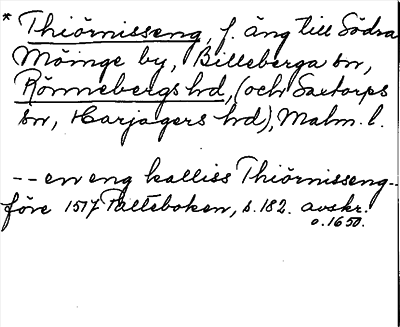 * Thiörnisseng, f. äng till Södra
Möinge by, Billeberga sn,
Rönnebergs hd, (och Saxtorps
sn, Harjagers hd), Malm. l.
-- en eng kalliss Thiörnisseng --
före 1517 Palteboken, s. 182. avskr.
o. 1650.